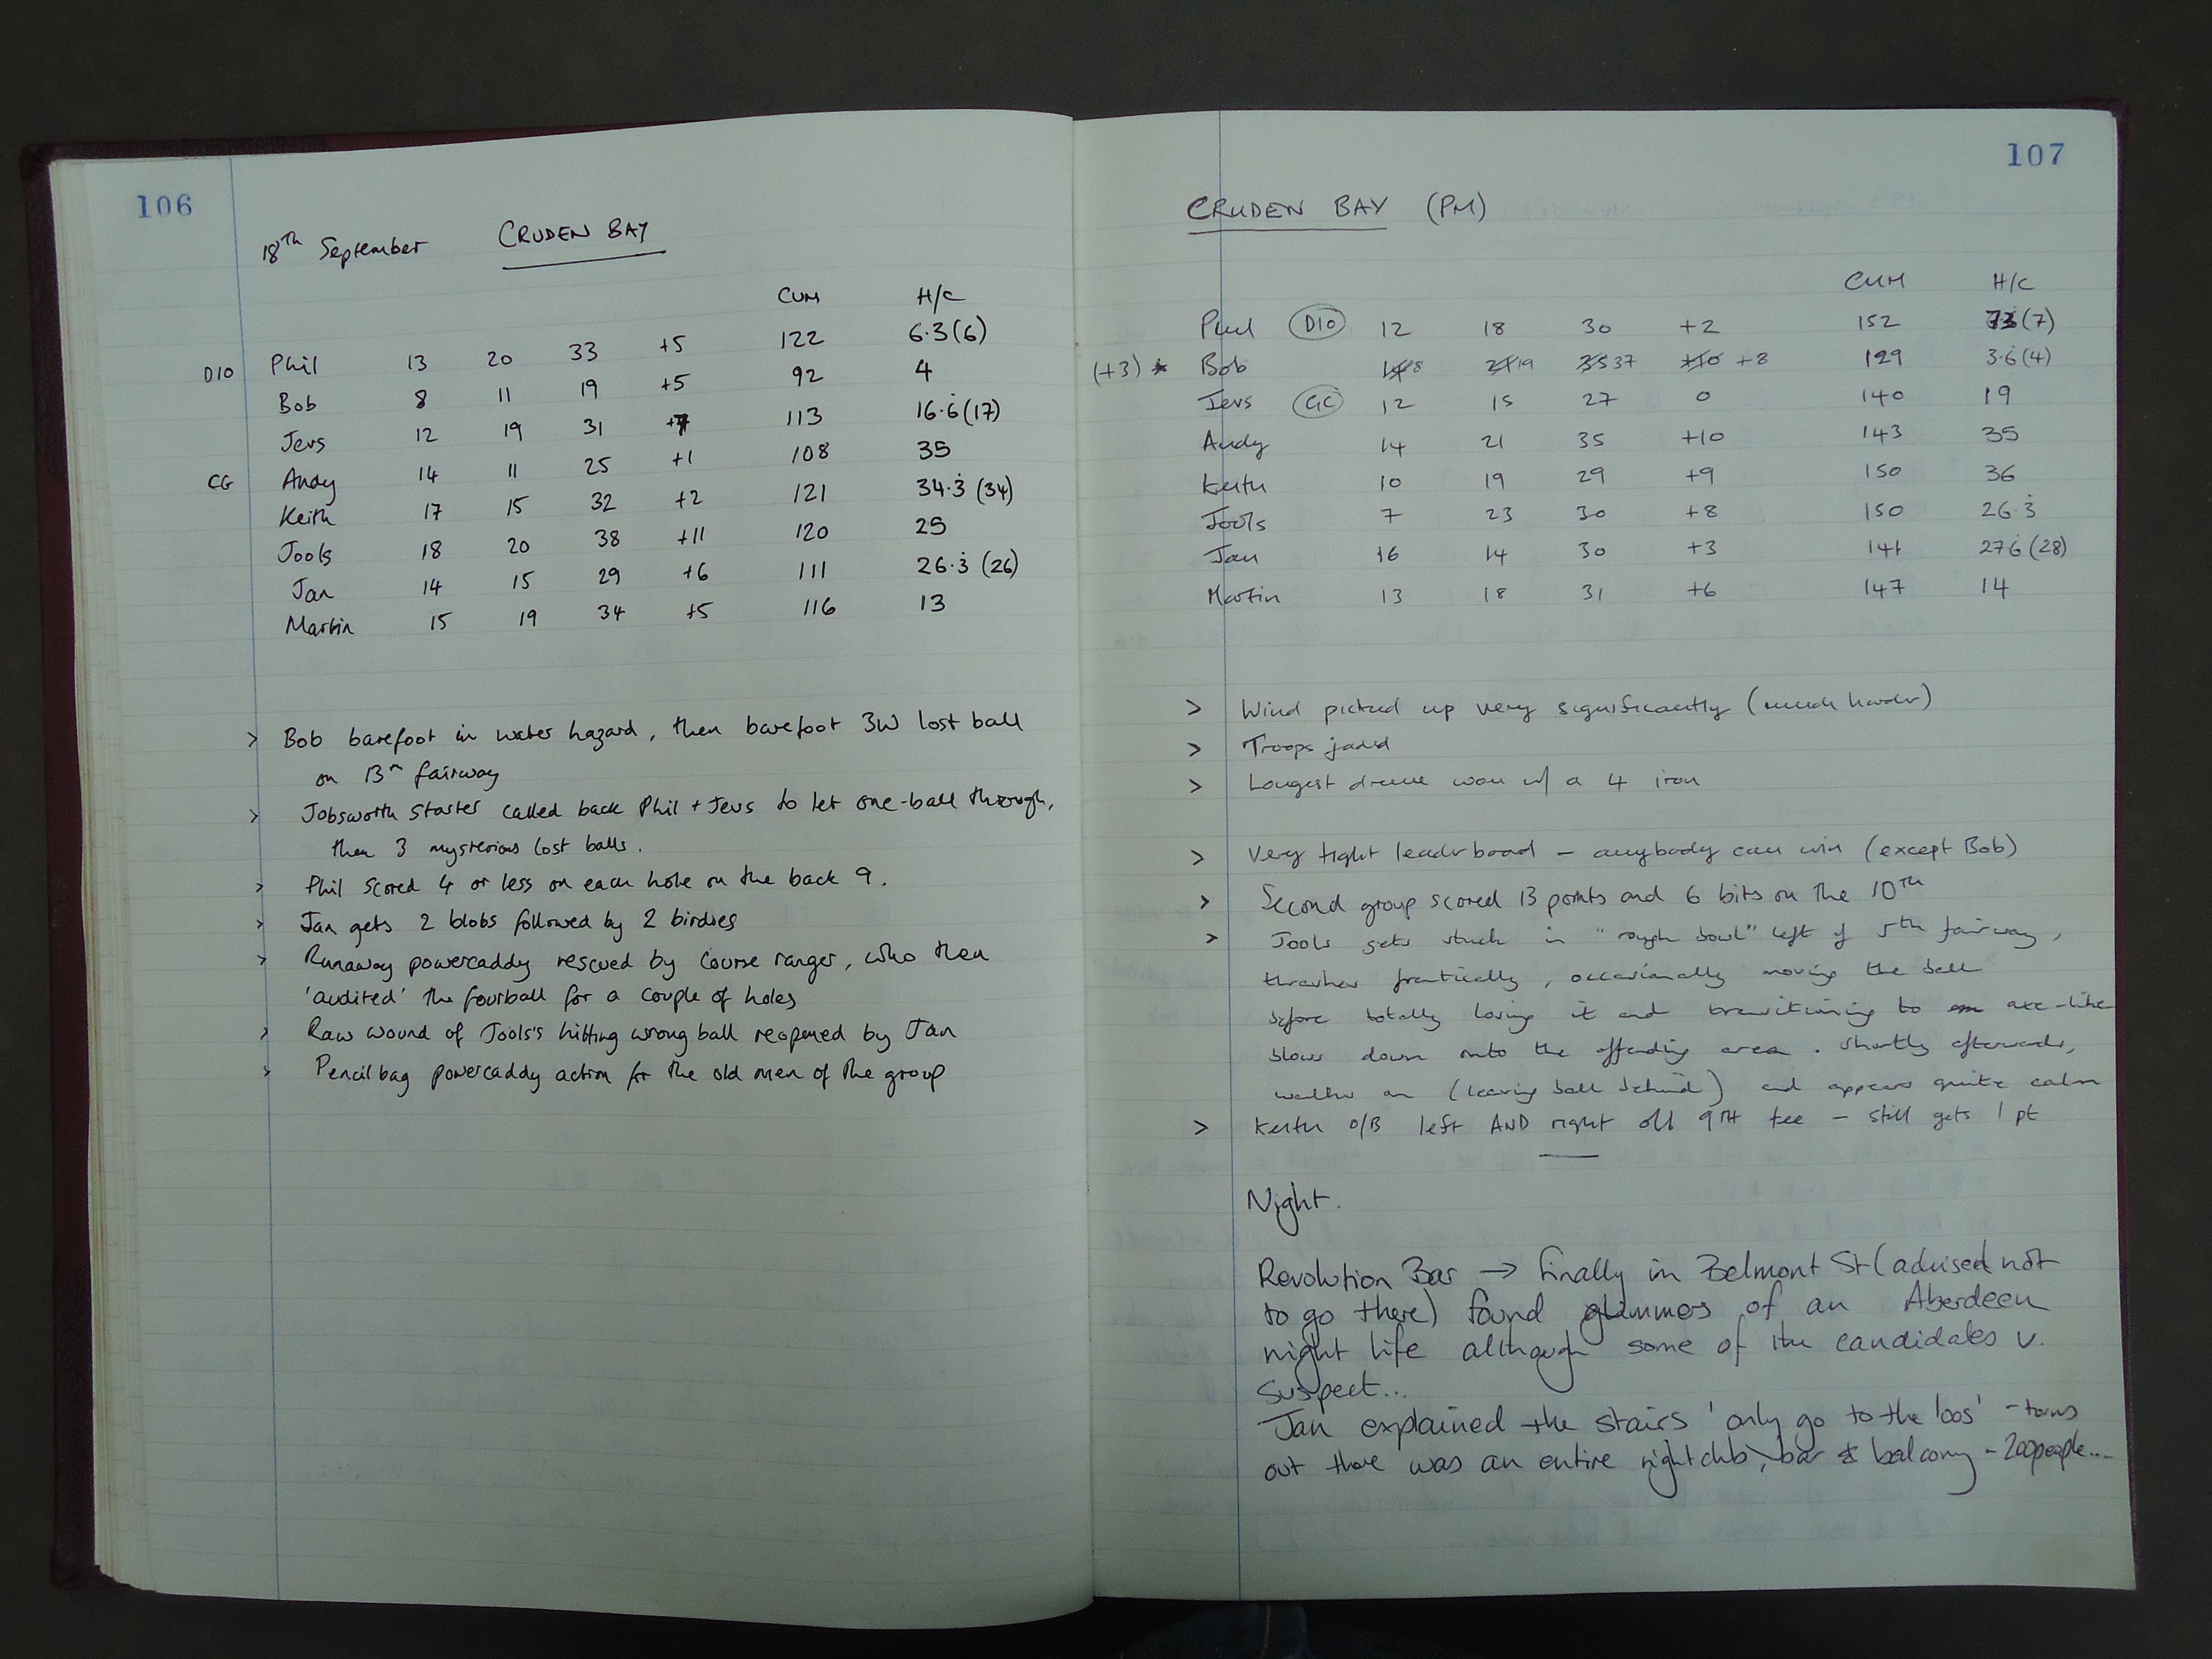 106
18th September CRUDEN BAY
CUM H/C
D10 Phil 13 20 33 +5 122 6.3(6)
Bob 8 11 19 +5 92 4
Jevs 12 19 31 +7 113 16.6(17)
CG Andy 14 11 25 +1 108 35
Keith 17 15 32 +2 121 34.3 (34)
Jools 18 20 38 +11 120 25
Jan 14 15 29 +6 111 26.3 (26)
Martin 15 19 34 +5 116 13
> Bob barefoot in water hazard, then barefoot 3W lost ball
on 13th fairway
> Jobsworth starter called back Phil + Jevs to let one-ball through,
then 3 mysterious lost balls.
> Phil scored 4 or less on each hole on the back 9.
> Jan gets 2 blobs followed by 2 birdies
> Runaway powercaddy rescued by course ranger, who then
'audited' the fourball for a couple of holes
> Raw wound of Jools's hitting wrong ball reopened by Jan
> Pencil bag powercaddy action for the old men of the group
107
CRUDEN BAY (PM)
CUM H/C
Phil D10 12 18 30 +2 152 (7)
(+3) * Bob 8 19 37 +8 129 3.6(4)
Jevs GC 12 15 27 0 140 19
Andy 14 21 35 +10 143 35
Keith 10 19 29 +9 150 36
Jools 7 23 30 +8 150 26.3
Jan 16 14 30 +3 141 27.6 (28)
Martin 13 18 31 +6 147 14
> Wind picked up very significantly (much harder)
> Troops jaded
> Longest drive won w/ a 4 iron
> Very tight leaderboard – anybody can win (except Bob)
> Second group scored 13 points and 6 bits on the 10th
> Jools gets stuck in "rough bowl" left of 5th fairway,
thrashes frantically, occasionally moving the ball
before totally losing it and transitioning to axe-like
blows down onto the offending area. Shortly afterwards,
walks on (leaving ball behind) and appears quite calm
> Keith O/B left AND right off 9TH tee – still gets 1 pt
Night.
Revolution Bar → finally in Belmont St (advised not
to go there) found glimmers of an Aberdeen
night life although some of the candidates v.
suspect...
Jan explained the stairs 'only go to the loos' - turns
out there was an entire nightclub, bar & balcony - 200 people...